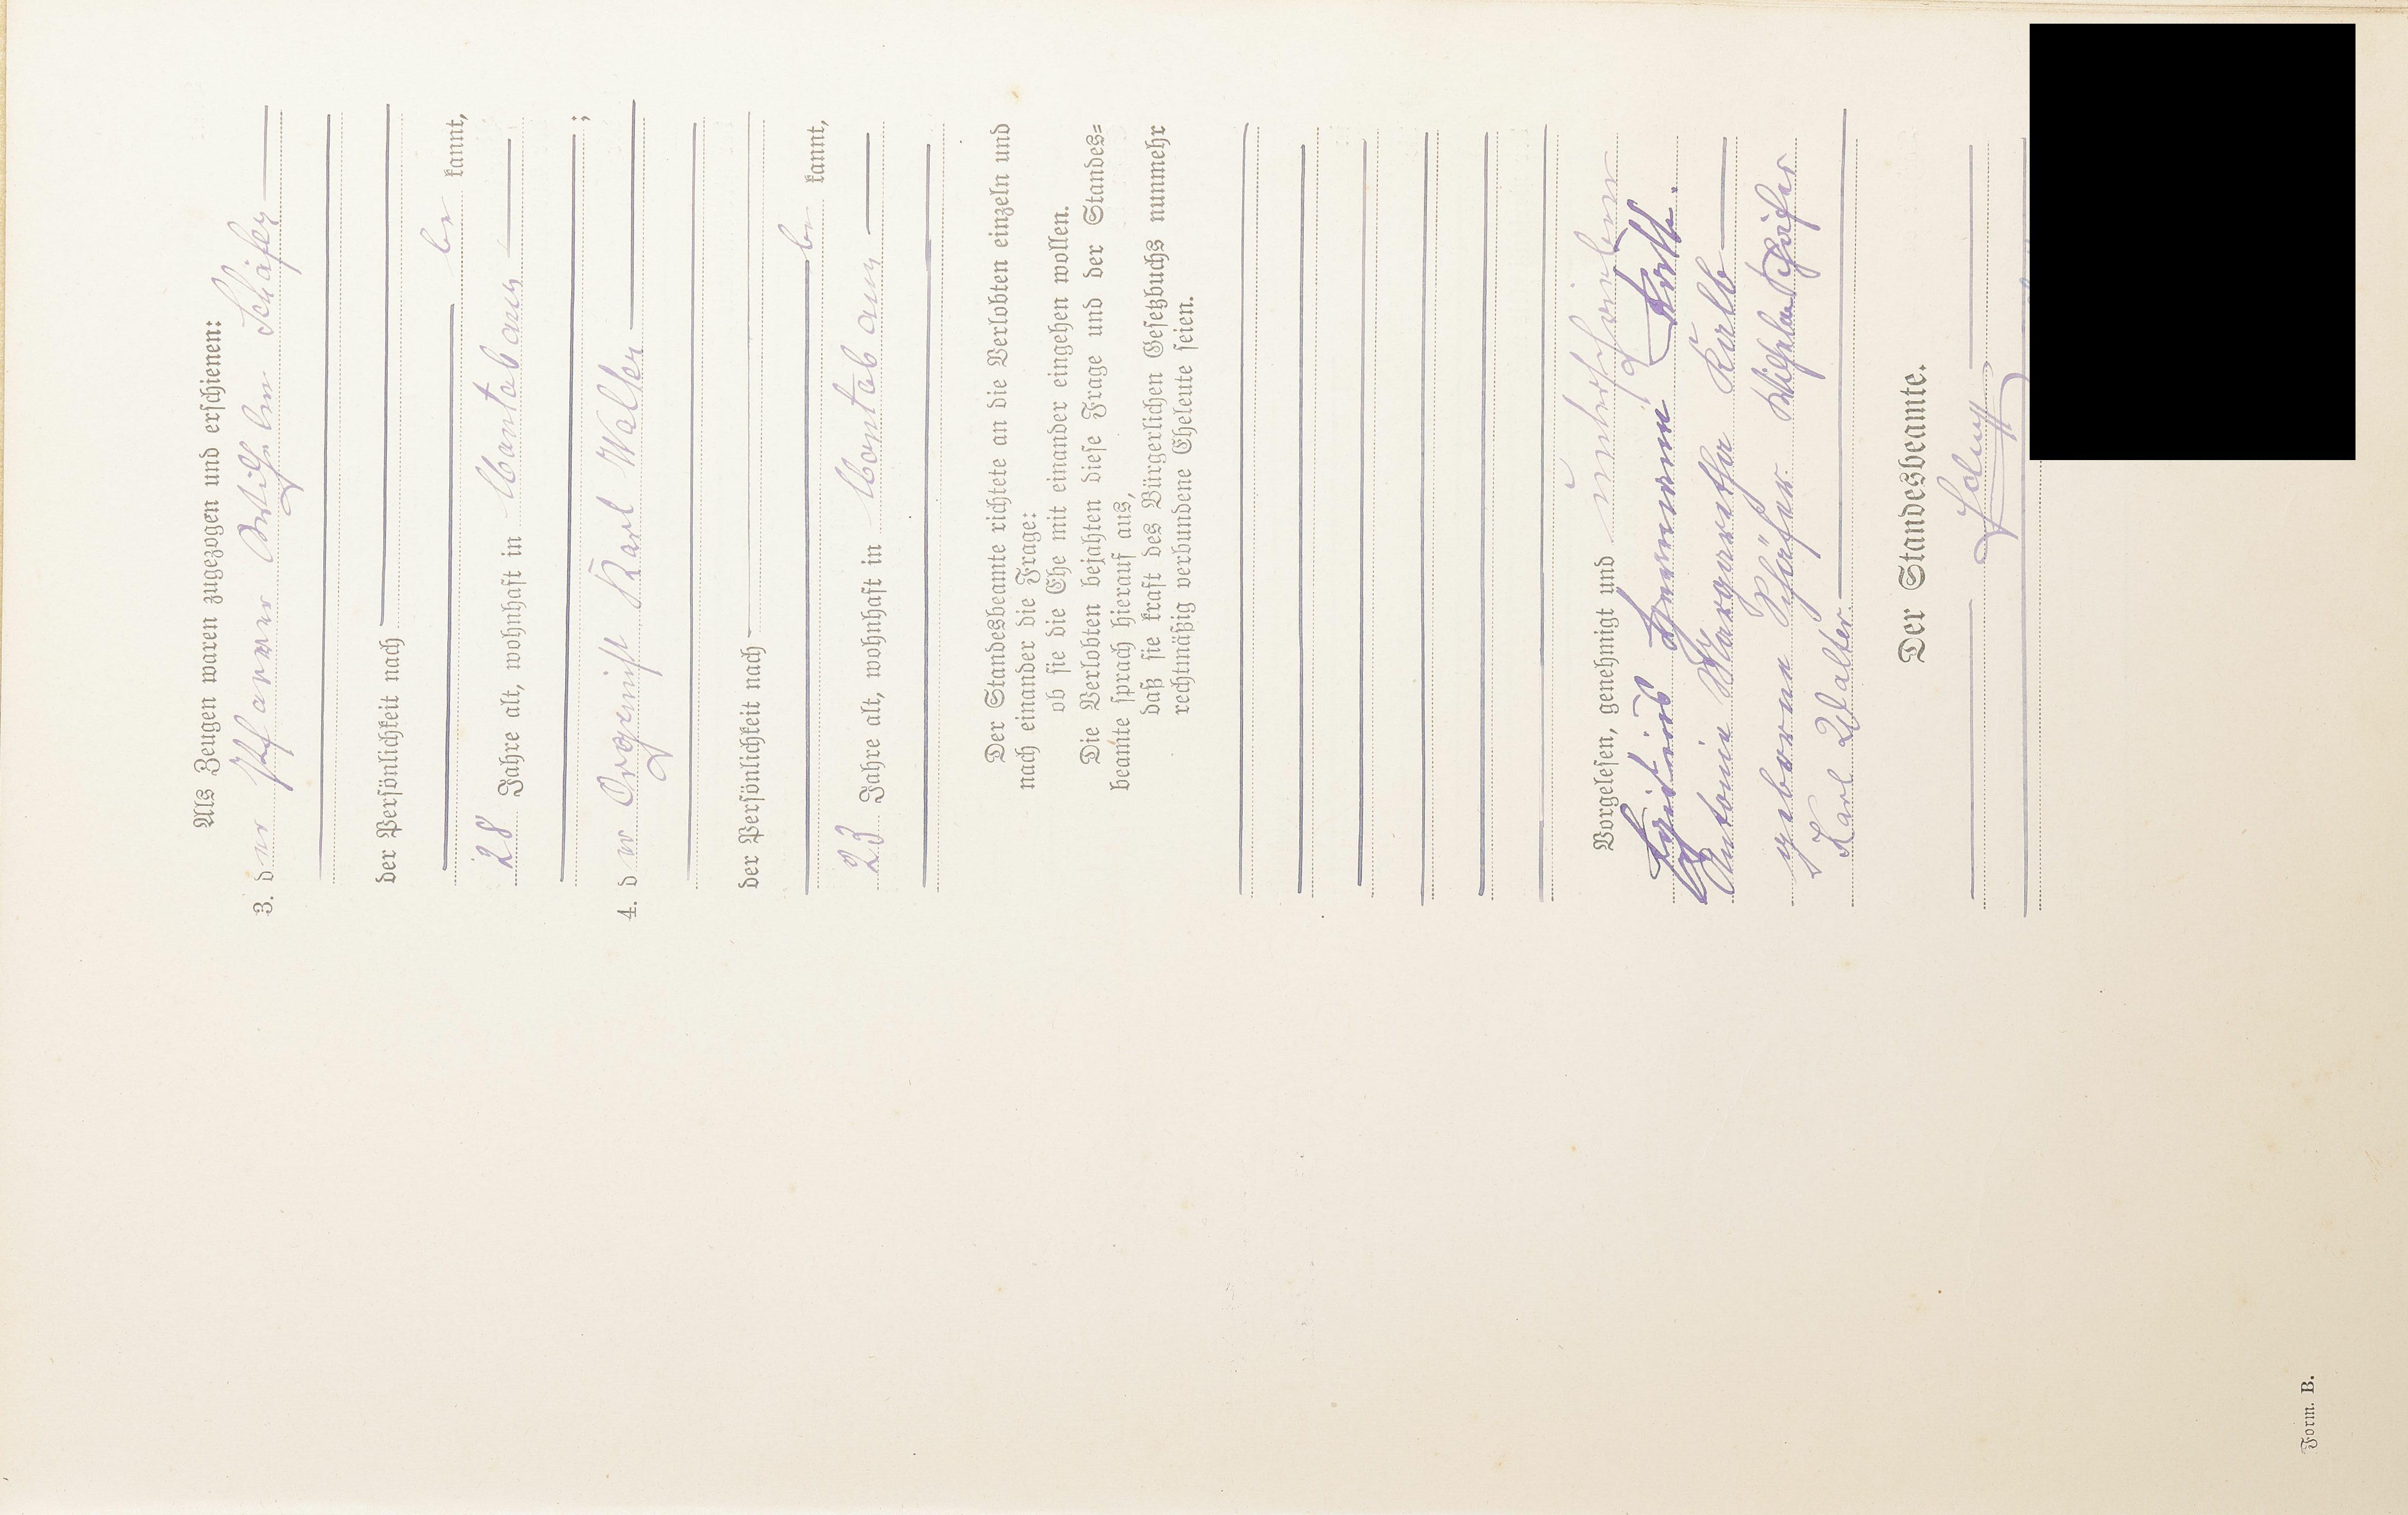 Als Zeugen waren zugezogen und erschienen:
3. der Pfarrer Wilhelm Schäfer
der Persönlichkeit nach
be kannt,
28 Jahre alt, wohnhaft in Montabaur
;
4. d er Organist Karl Walter
der Persönlichkeit nach
be kannt,
23 Jahre alt, wohnhaft in Montabaur
Der Standesbeamte richtete an die Verlobten einzeln und
nach einander die Frage:
ob sie die Ehe mit einander eingehen wollen.
Die Verlobten bejahten diese Frage und der Standes=
beamte sprach hierauf aus,
daß sie kraft des Bürgerlichen Gesetzbuchs nunmehr
rechtmäßig verbundene Eheleute seien.
Vorgelesen, genehmigt und unterschrieben
Hermann Kalb.
Antonie Margaretha Kalb
geborene Schäfer. Wilhelm Schäfer
Karl Walter
Der Standesbeamte.
Form. B.